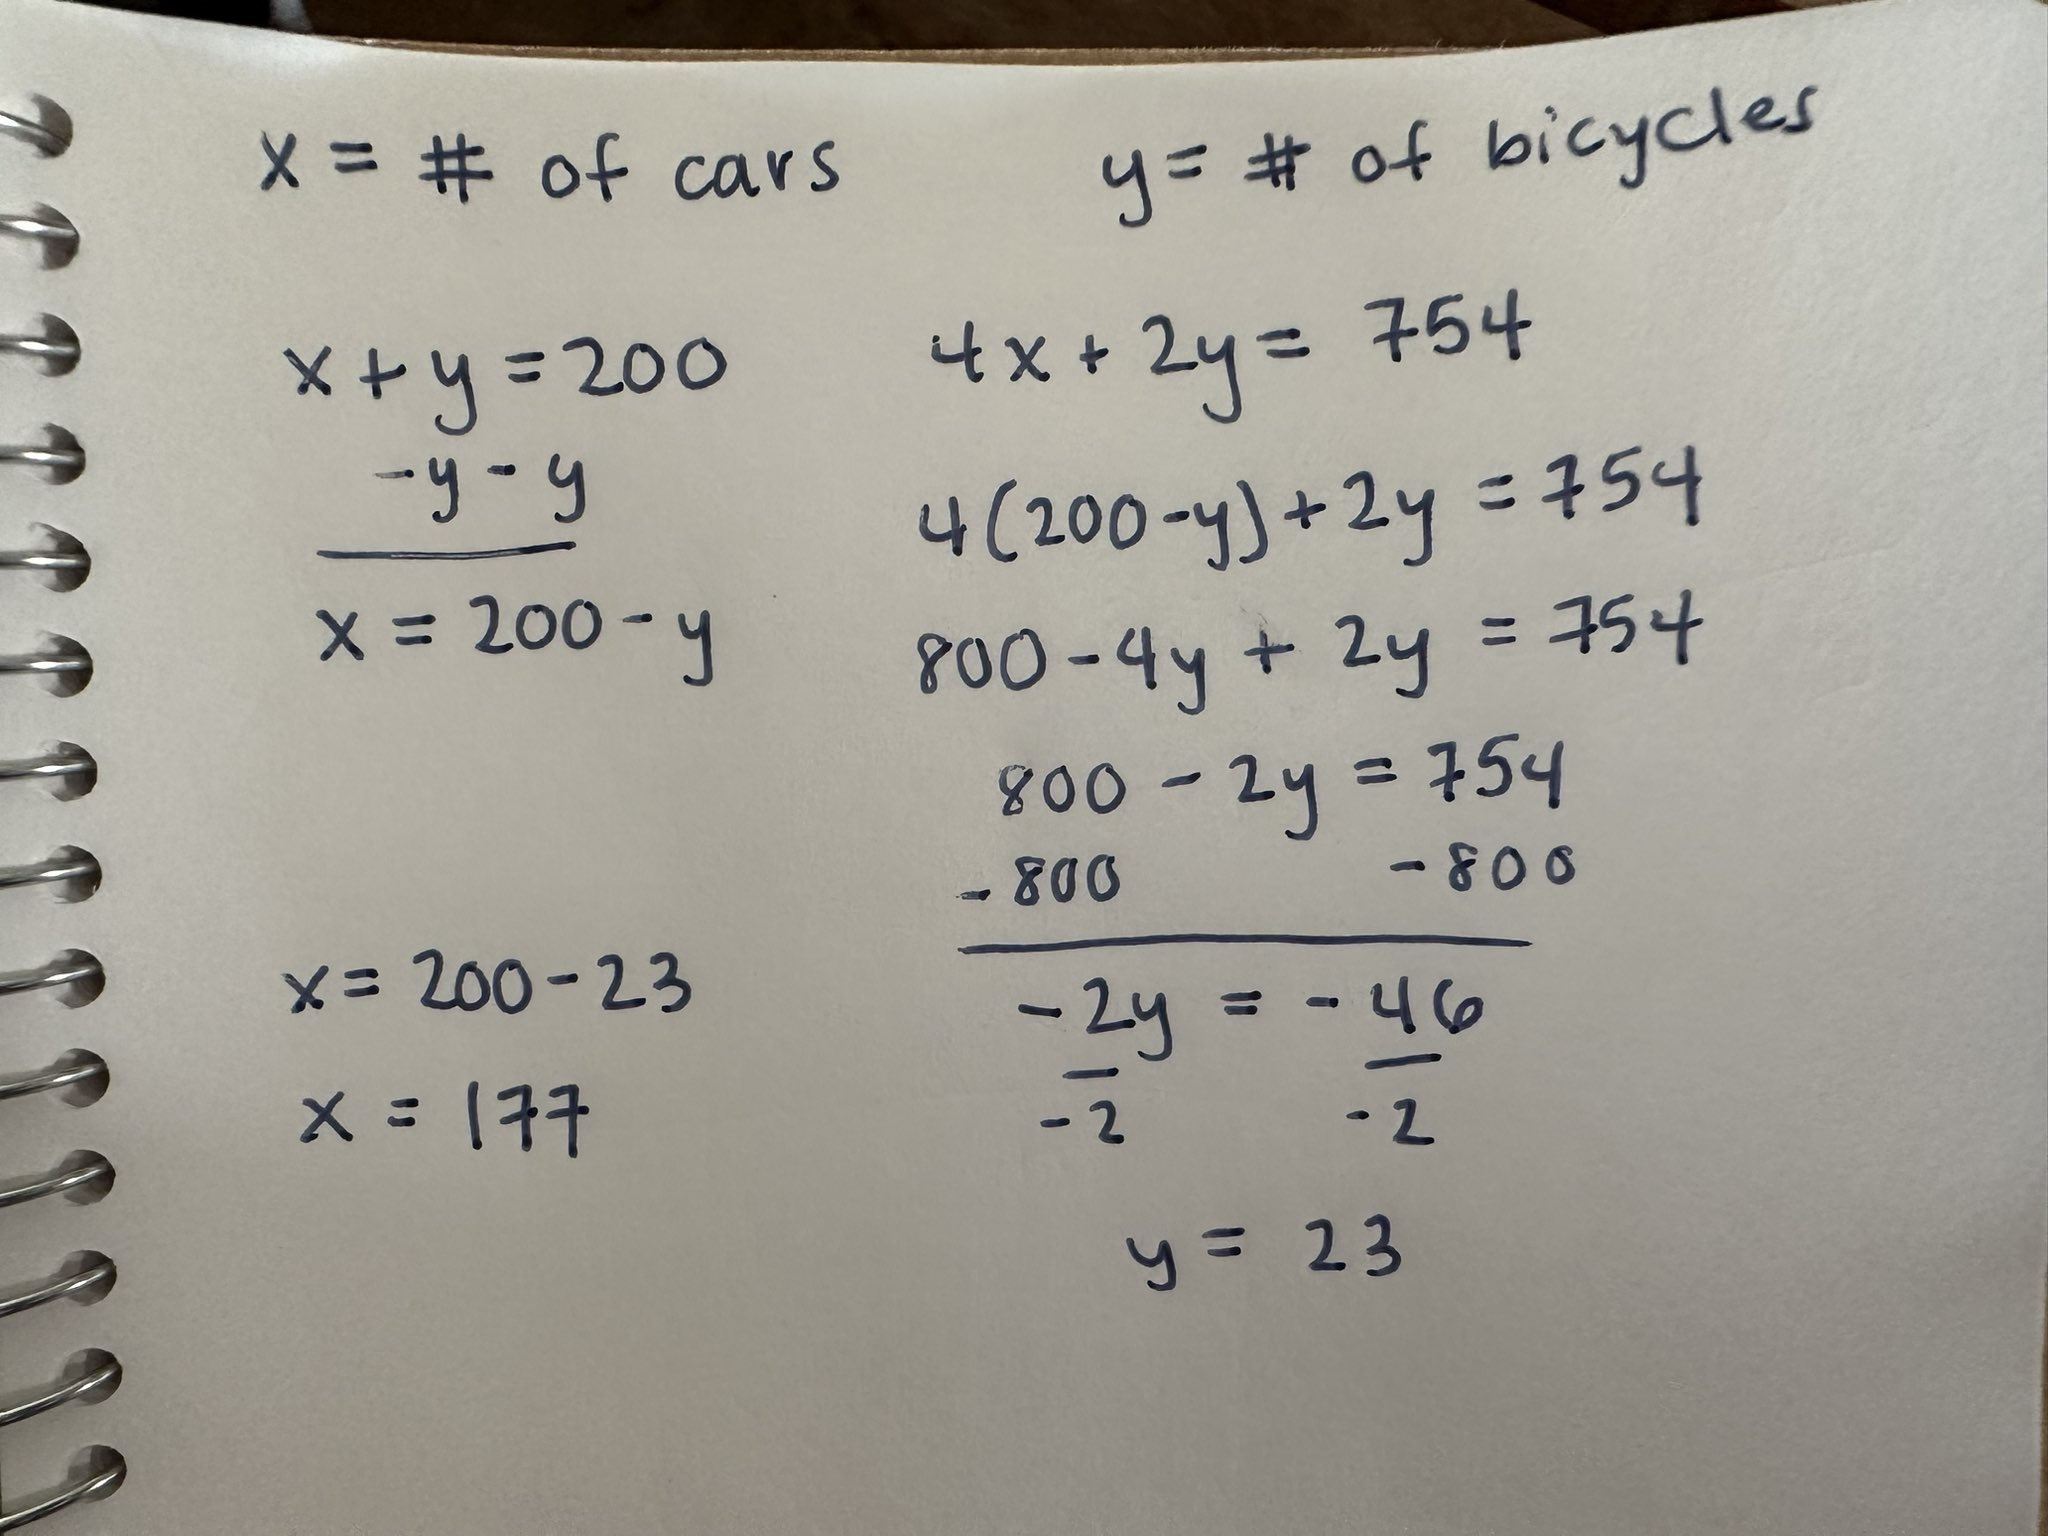 x = # of cars
y = # of bicycles
x + y = 200
-y - y
x = 200 - y
4x + 2y = 754
4(200-y) + 2y = 754
800 - 4y + 2y = 754
800 - 2y = 754
-800 -800
-2y = -46
-2 -2
y = 23
x = 200 - 23
x = 177